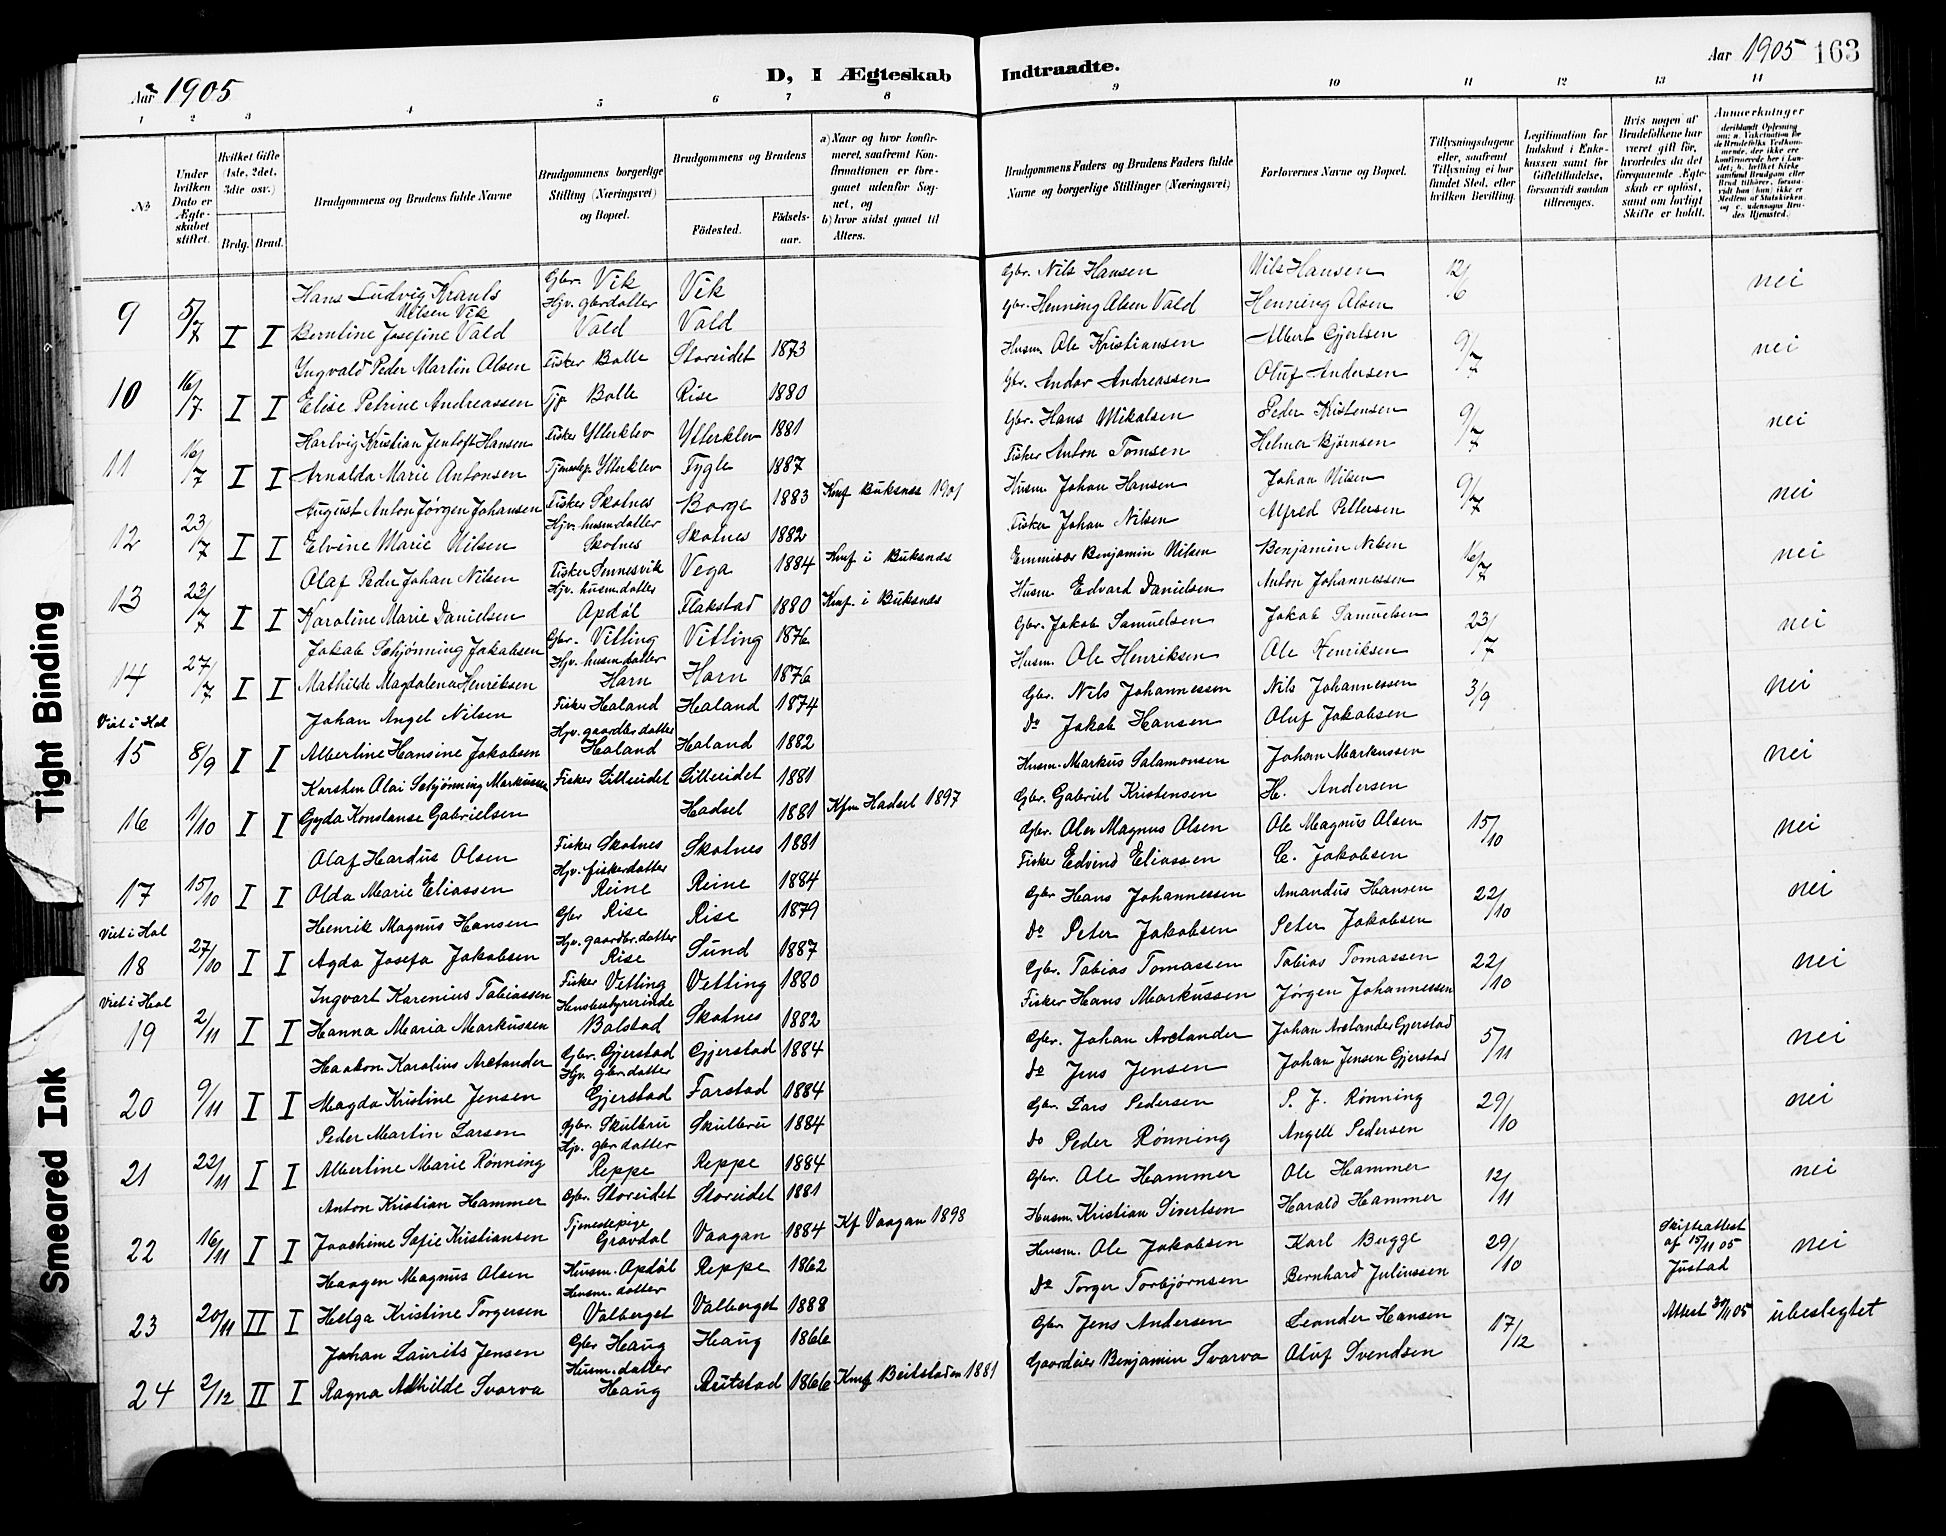 Aar 1905
D, I Ægteskab
1 2 3 4 5 6 7 8
№
Under hvilken Dato er Ægteskabet stiftet.
Hvilket Gifte (1ste, 2det, 3die osv.)
Brdg. Brud.
Brudgommens og Brudens fulde Navne
Brudgommens borgerlige Stilling (Næringsvei) og Bopæl.
Brudgommens og Brudens
Födested. Födsels-aar.
a) Naar og hvor konfirmeret, saafremt Konfirmationen er foregaaet udenfor Sognet, og
b) hvor sidst gaaet til Alters.
Hans Ludvig Krauls Nilsen Vik Gbr. Vik Vik
9 5/7 I I Berntine Josefine Vald Hjv. gbrdatter Vald Vald
Yngvald Peder Martin Olsen Fisker Bolle Storeidet 1873
10 16/7 I I Elise Petrine Andreassen Tjp Bolle Rise 1880
Hartvig Kristian Jentoft Hansen Fisker Ytterklev Ytterklev 1881
11 16/7 I I Arnolda Marie Antonsen Ytterklev Tygle 1887
August Anton Jørgen Johansen Fisker Skotnes Borge 1883 Knf Buksnes 1901
12 23/7 I I Elvine Marie Nilsen Hjv. husmdatter Skotnes Skotnes 1882
Olaf Peder Johan Nilsen Fisker Sennesvik Vega 1884 Knf i Buksnes
13 23/7 I I Karoline Marie Danielsen Hjv. husmdatter Apdøl Flakstad 1880 Knf. i Buksnes
Jakob Schjønning Jakobsen Gbr. Vitting Vitting 1876
14 27/7 I I Mathilde Magdalena Henriksen Hjv. husmdatter Harn Harn 1876
Viet i Hol
Johan Angel Nilsen Fisker Holand Holand 1874
15 8/9 I I Albertine Hansine Jakobsen Hjv. gaardbr.datter Holand Holand 1882
Karsten Olai Schjønning Markussen Fisker Lilleeidet Lilleeidet 1881
16 1/10 I I Gyda Konstanse Gabrielsen Hadsel 1881 Kfm Hadsel 1897
Olaf Hardus Olsen Fisker Skotnes Skotnes 1881
17 15/10 I I Olda Marie Eliassen Hjv. fiskerdatter Reine Reine 1884
Viet i Hol
Henrik Magnus Hansen Gbr Rise Rise 1879
18 27/10 I I Agda Josefa Jakobsen Hjv. gaardbr.datter Rise Sund 1887
Viet i Hol
Ingvart Karenius Tobiassen Fisker Vetting Vetting 1880
19 2/11 I I Hanna Maria Markussen Husbestyrerinde Balstad Skotnes 1882
Haakon Karolius Arctander Gbr. Gjerstad Gjerstad 1884
20 9/11 I I Magda Kristine Jensen Hjv. gbrdatter Gjerstad Farstad 1884
Peder Martin Larsen Gbr. Skulbru Skulbru 1884
21 22/11 I I Albertine Marie Rønning Hjv. gbrdatter Reppe Reppe 1884
Anton Kristian Hammer Gbr. Storeidet Storeidet 1881
22 16/11 I I Joachime Sofie Kristiansen Tjenestepige Gravdal Vaagan 1884 Kf Vaagan 1898
Haagen Magnus Olsen Husm. Apdøl Reppe 1862
23 20/11 II I Helga Kristine Torgersen Husm. datter Valberget Valberget 1888
Johan Laurits Jensen Gbr Haug Haug 1866
24 2/12 II I Ragna Adhilde Svarva Husm. datter Haug 1866 Knf Beitstaden 1881
Indtraadte.
Aar 1905 163
9 10 11 12 13 14
Brudgommens Faders og Brudens Faders fulde Navne og borgerlige Stillinger (Næringsvei)
Forlovernes Navne og Bopæl.
Tillysningsdagene eller, saafremt Tillysning ei har fundet Sted, efter hvilken Bevilling.
Legitimation for Indskud i Enkekassen samt for Giftetilladelse, forsaavidt saadan tiltrænges.
Hvis nogen af Brudefolkene har været gift før, hvorledes da det foregaaende Ægteskab er opløst, samt om lovligt Skifte er holdt.
Anmærkninger
Gbr. Nils Hansen Nils Hansen 12/6 nei
Gbr. Henning Olsen Vald Henning Olsen
Husm Ole Kristiansen Albert Gjertsen 9/7 nei
Gbr. Andor Andreassen Oluf Andersen
Gbr. Hans Mikalsen Peder Kristensen 9/7 nei
Fisker Anton Tomsen Helmer Bjørnsen
Husm Johan Hansen Johan Nilsen 9/7 nei
Fisker Johan Nilsen Alfred Pettersen
Emmisær Benjamin Nilsen Benjamin Nilsen 16/7 nei
Husm Edvard Danielsen Anton Johannessen
Gbr. Jakob Samuelsen Jakob Samuelsen 23/7 nei
Husm. Ole Henriksen Ole Henriksen
Gbr. Nils Johannessen Nils Johannessen 3/9 nei
Do Jakob Hansen Oluf Jakobsen
Husm. Markus Salamonsen Johan Markussen nei
Gbr. Gabriel Kristensen H. Andersen
Gbr. Oler Magnus Olsen Ole Magnus Olsen 15/10 nei
Fisker Edvind Eliassen C. Jakobsen
Gbr Hans Johannessen Amandus Hansen 22/10 nei
Do Peter Jakobsen Peter Jakobsen
Gbr. Tobias Tomassen Tobias Tomassen 22/10 nei
Fisker Hans Markussen Jørgen Johannessen
Gbr. Johan Arctander Johan Arctander Gjerstad 5/11 nei
Do Jens Jensen Johan Jensen Gjerstad
Gbr. Lars Pedersen P. J. Rønning 29/10 nei
Do Peder Rønning Angell Pedersen
Gbr. Ole Hammer Ole Hammer 12/11 nei
Husm. Kristian Sivertsen Harald Hammer
Husm. Ole Jakobsen Karl Bugge 29/10 Skifteattest af 15/11 05 Justad nei
Do Torger Torbjørnsen Bernhard Juliussen
Gbr Jens Andersen Leander Hansen 17/12 Attest 30/11 05 ubeslegtet
Gaardeier Benjamin Svarva Oluf Svendsen
Tight Binding
Smeared Ink